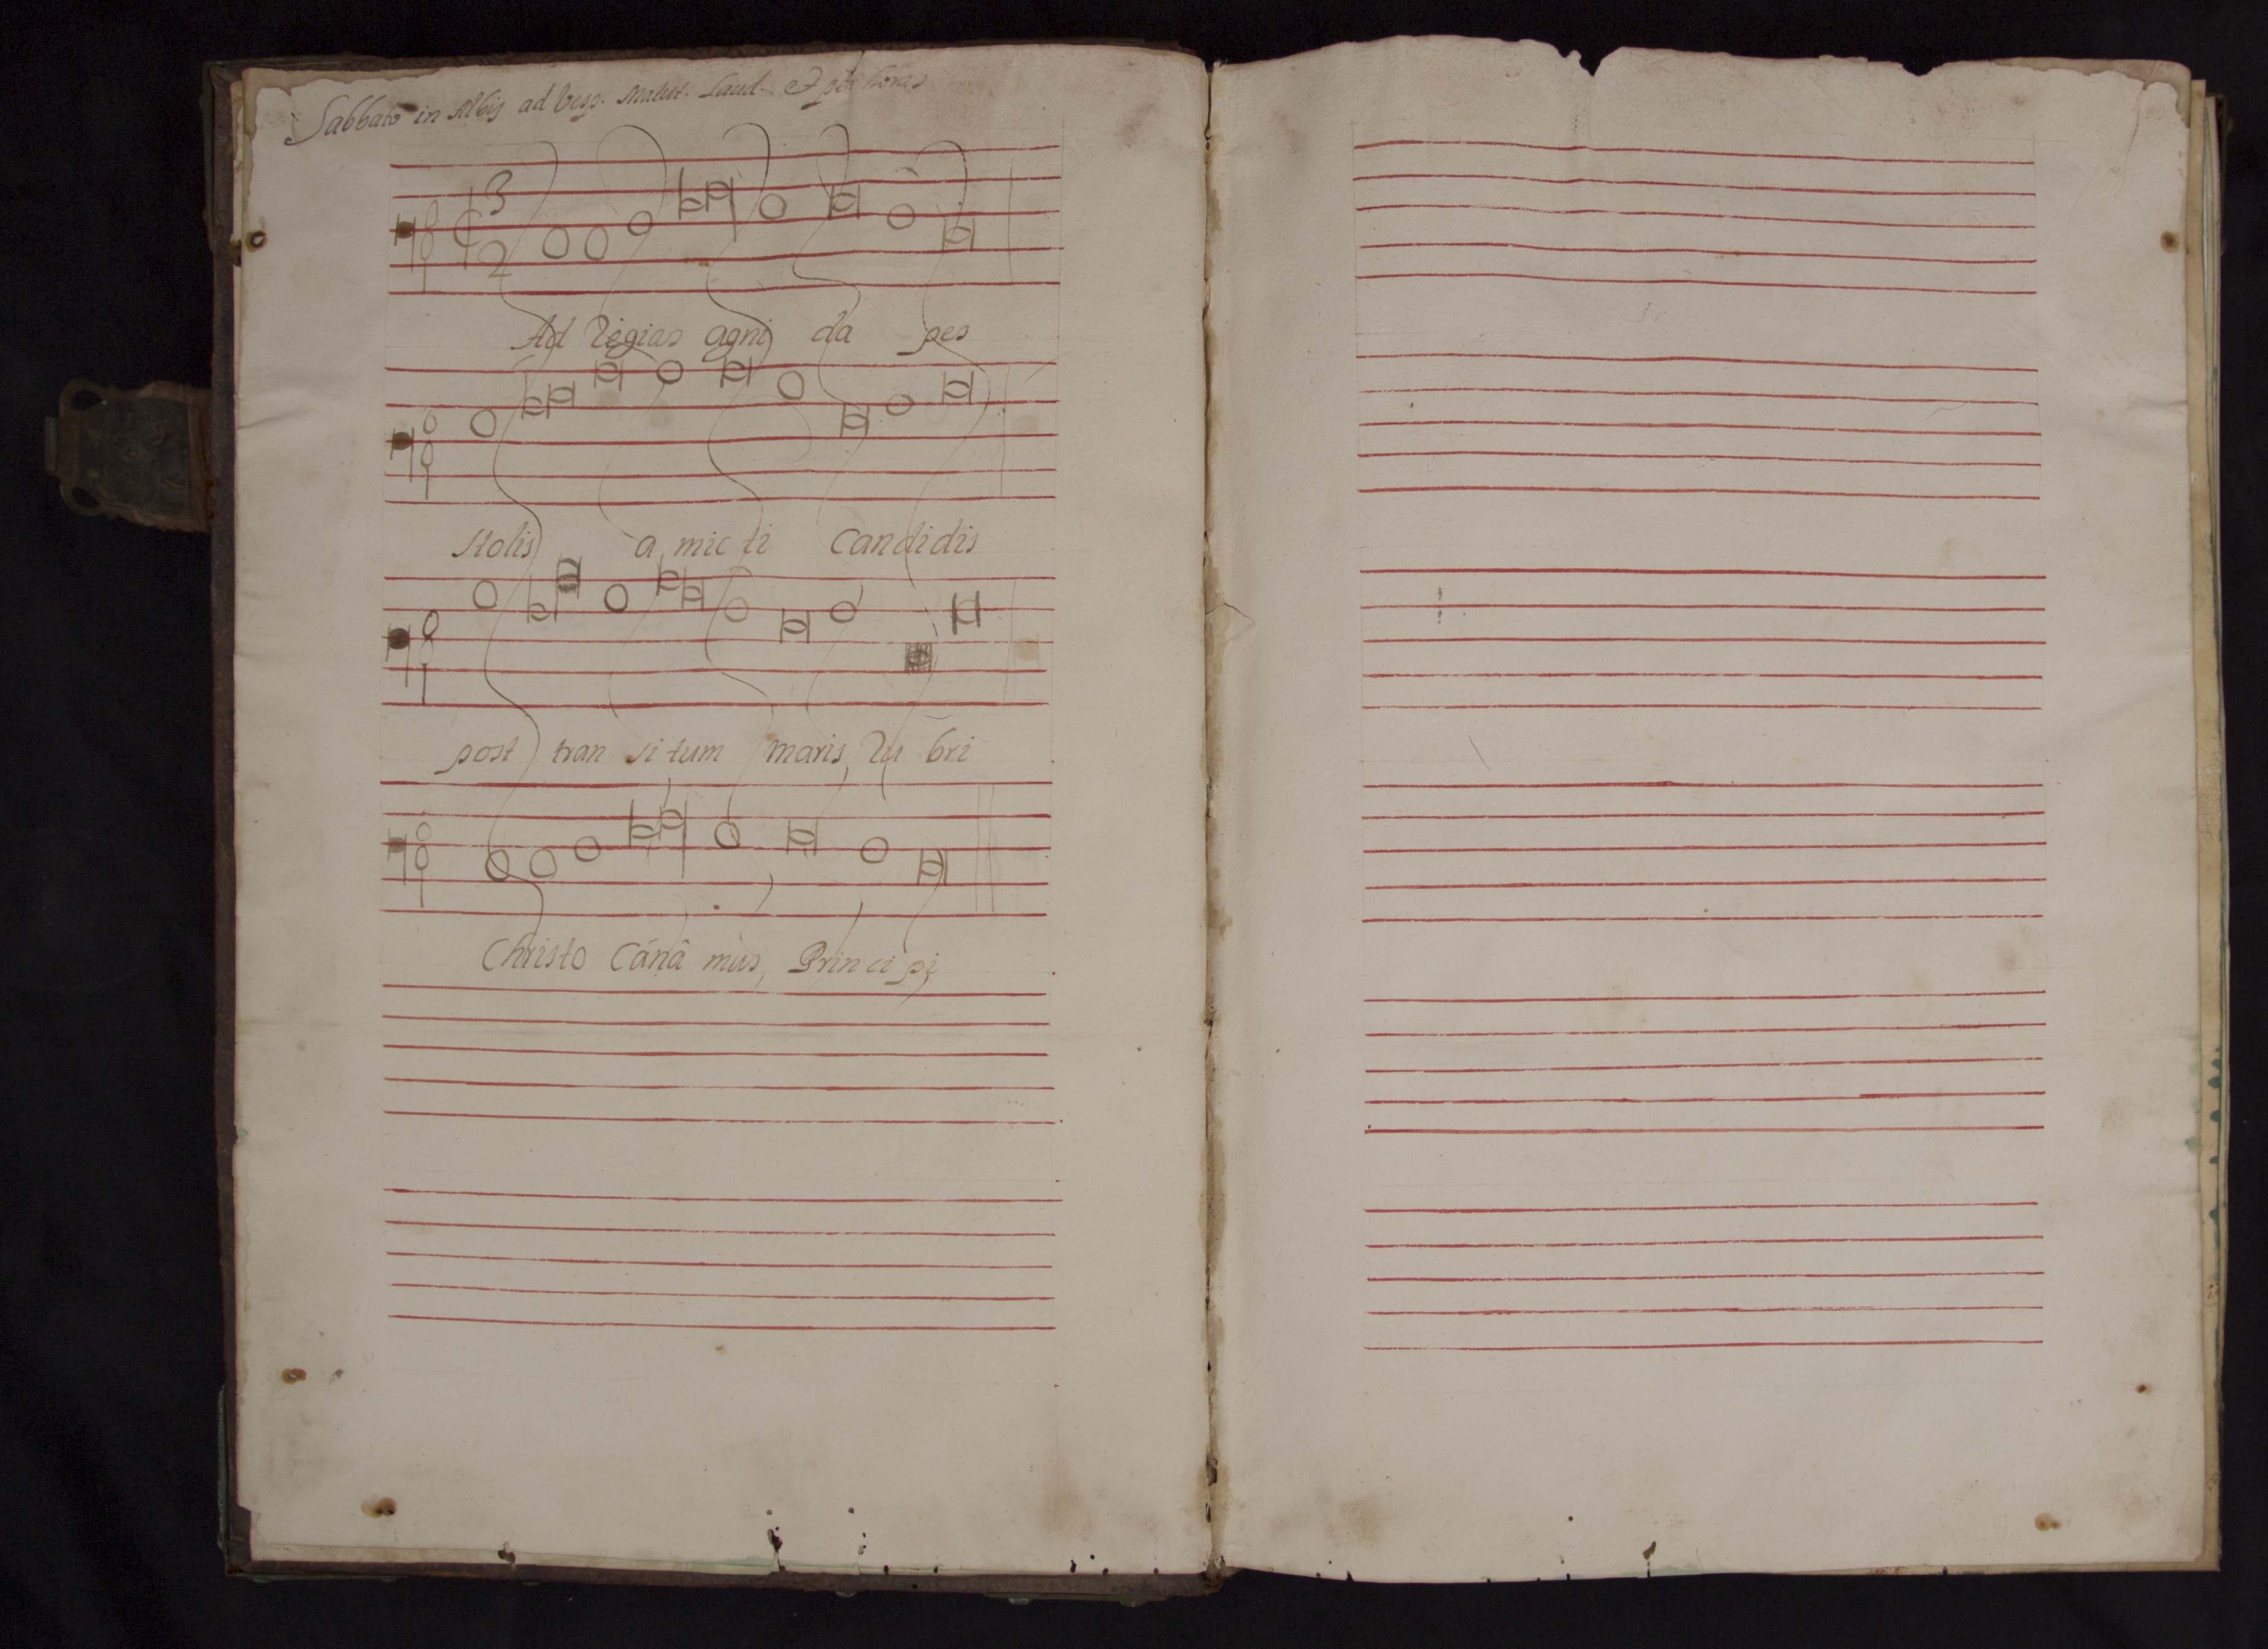 Sabbato in Albis ad Vesp. Matut. Laud. et per horas
3
2
Ad regias agni da pes
Stolis a mic ti Candidis
post tran si tum maris Ru bri
Christo Cánâ mus, Prin ci pi